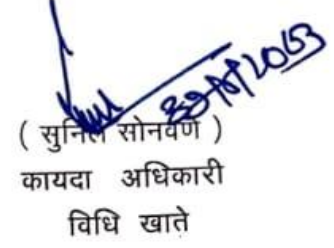 ( सुनिल सोनवणे )
कायदा अधिकारी
विधि खाते